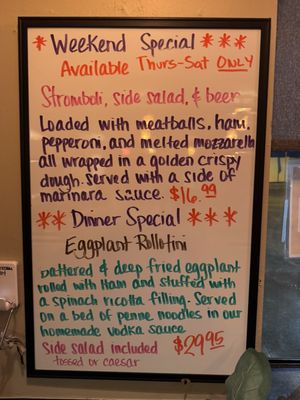 * Weekend Special ***
Available Thurs-Sat ONLY
Stromboli, side salad, & beer
Loaded with meatballs, ham,
pepperoni, and melted mozzarella
all wrapped in a golden crispy
dough. served with a side of
marinara sauce. $16.99
** Dinner Special ***
Eggplant Rollotini
battered & deep fried eggplant
rolled with Ham and stuffed with
a spinach ricotta filling. Served
on a bed of penne noodles in our
homemade vodka sauce
Side salad included $29.95
tossed or caesar